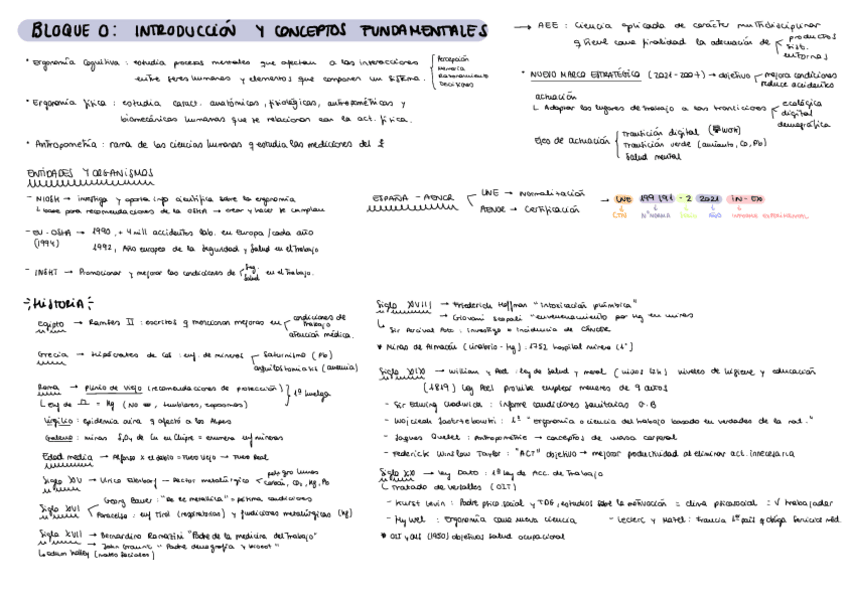 BLOQUE 0: INTRODUCCIÓN Y CONCEPTOS FUNDAMENTALES
• Ergonomía Cognitiva: estudia procesos mentales que afectan a las interacciones
entre seres humanos y elementos que componen un sistema.
Percepción
Memoria
Razonamiento
Decisiones
• Ergonomía física: estudia caract. anatómicas, fisiológicas, antropométricas y
biomecánicas humanas que se relacionan con la act. física.
• Antropometría: rama de las ciencias humanas q estudia las mediciones del
→ AEE: Ciencia aplicada de carácter multidisciplinar
q tiene como finalidad la adecuación de
productos
sist.
entornos
• NUEVO MARCO ESTRATÉGICO (2021-2007) → objetivo
mejora condiciones
reduce accidentes
actuación
↳ Adaptar los lugares de trabajo a las transiciones
ecológica
digital
demográfica
Ejes de actuación
Transición digital
Transición verde (amianto, Co, Pb)
Salud mental
ENTIDADES Y ORGANISMOS
- NIOSH → investiga y aporta info científica sobre la ergonomía
↳ base para recomendaciones de la OSHA → crear y hacer se cumplan
- EU-OSHA → 1990, + 4 mill accidentes lab. en europa/cada año
(1994) 1992, Año europeo de la Seguridad y Salud en el Trabajo
- INSHT → Promocionar y mejorar las condiciones de
Seg.
Salud
en el Trabajo.
ESPAÑA - AENOR
UNE → Normalización
AENOR → Certificación
→ UNE 199 191 - 2 2021 IN - EX
CTN Nº NORMA AÑO
HISTORIA:
Egipto → Ramsés II: escritos q mencionan mejoras en
condiciones de trabajo
atención médica.
Grecia → Hipócrates de Cos: enf. de mineros
Saturnismo (Pb)
anquilostomiasis (anemia)
Roma → Plinio el Viejo (recomendaciones de protección)
1º huelga
= Hg (No, temblores, espasmos)
Virgilio: epidemia afectó a los Alpes
Galeno: minas de Cu en Chipre = enferm mineros
Edad media → Alfonso X el Sabio = Fuero Viejo → Fuero Real
Siglo XV → Ulrico Ellenbog - Sector metalúrgico
peligro humos
carbón, CO, Hg, Pb
Siglo XVI
Georg Bauer: "De re metallica" = pésimas condiciones
Paracelso: enf Tirol (respiratorias) y fundiciones metalúrgicas (Hg)
Siglo XVII → Bernardino Ramazzini "Padre de la medicina del Trabajo"
→ John Graunt "Padre demografía y
Siglo XVIII → Friederich Hoffman "Intoxicación plúmbica"
→ Giovani Scopoli "envenenamiento por Hg en minas
↳ Sir Percival Pott: Investiga = Incidencia de CÁNCER
* Minas de Almadén (cinabrio - Hg): 1752 hospital minero (1º)
Siglo XIX → William y Peel: ley de salud y moral (niños 12h) niveles de higiene y educación
(1819) ley Peel prohíbe emplear menores de 9 años
- Sir Edwing Chadwick: Informe condiciones sanitarias G.B
- Wojciech Jastrzebowski: 1º "ergonomía o ciencia del trabajo basado en verdades de la nat."
- Jaques Quetlet: Antropometría → conceptos de masa corporal
- Federick Winslow Taylor: "ACT" objetivo → mejorar productividad al eliminar act. innecesaria
Siglo XX → ley Dato: 1º ley de Acc. de Trabajo
↳ Tratado de Versalles (OIT)
- Kurt Levin: Padre psico.social y TDG, estudios sobre la motivación = clima psicosocial = √ trabajador
- Hywel: Ergonomía como nueva ciencia
- Leclerc y Matel: Francia 1º país q obliga Servicio méd.
* OIT y OMS (1950) objetivos salud ocupacional